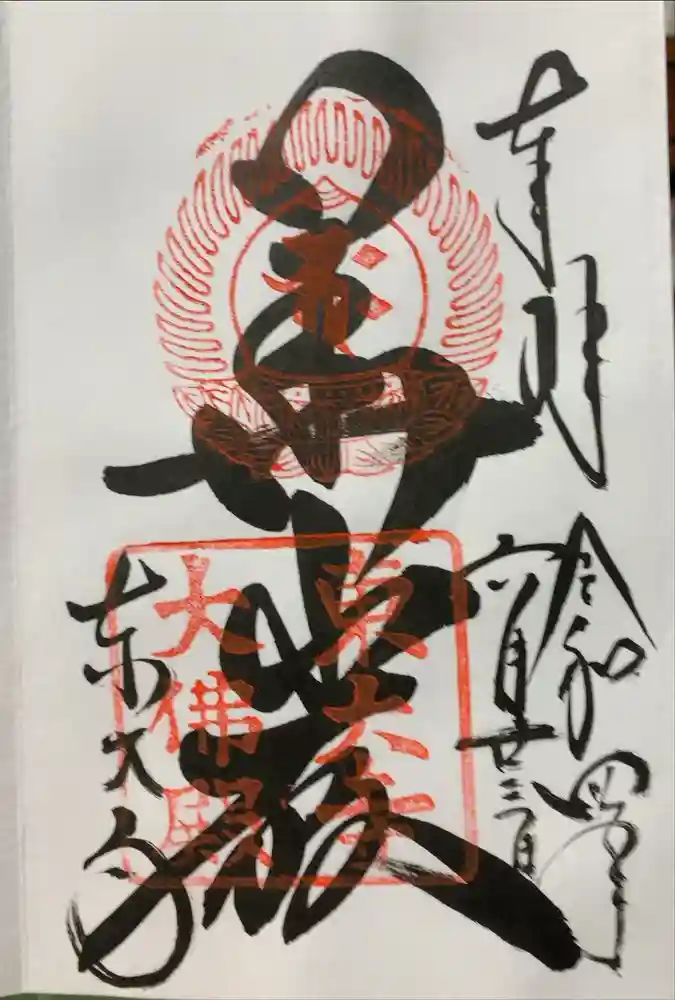 奉拝
令和四年
六月廿三日
華嚴
東大寺
大佛殿
東大寺